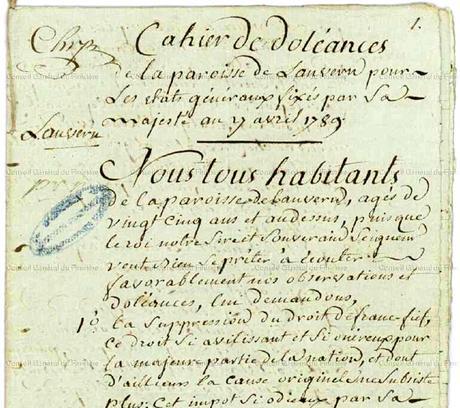 1.
Chrz
Cahier de doléances
de la paroisse de Lanvern pour
Les etats généraux fixés par Sa
Majesté au 27 avril 1789
Lanvern
Nous tous habitants
de la paroisse de Lanvern, agés de
vingt cinq ans et audessus, puisque
le roi notre Sire et Souverain Seigneur
veut bien se préter à écouter
favorablement nos observations et
doléances, lui demandons,
1º La Suppression du droit de franc-fief,
ce droit Si avilissant et Si onéreux pour
la majeure partie de la nation, et dont
d'ailleurs la cause originel ne Subsiste
plus. Cet impot Si odieux par Sa
Conseil Général du Finistère